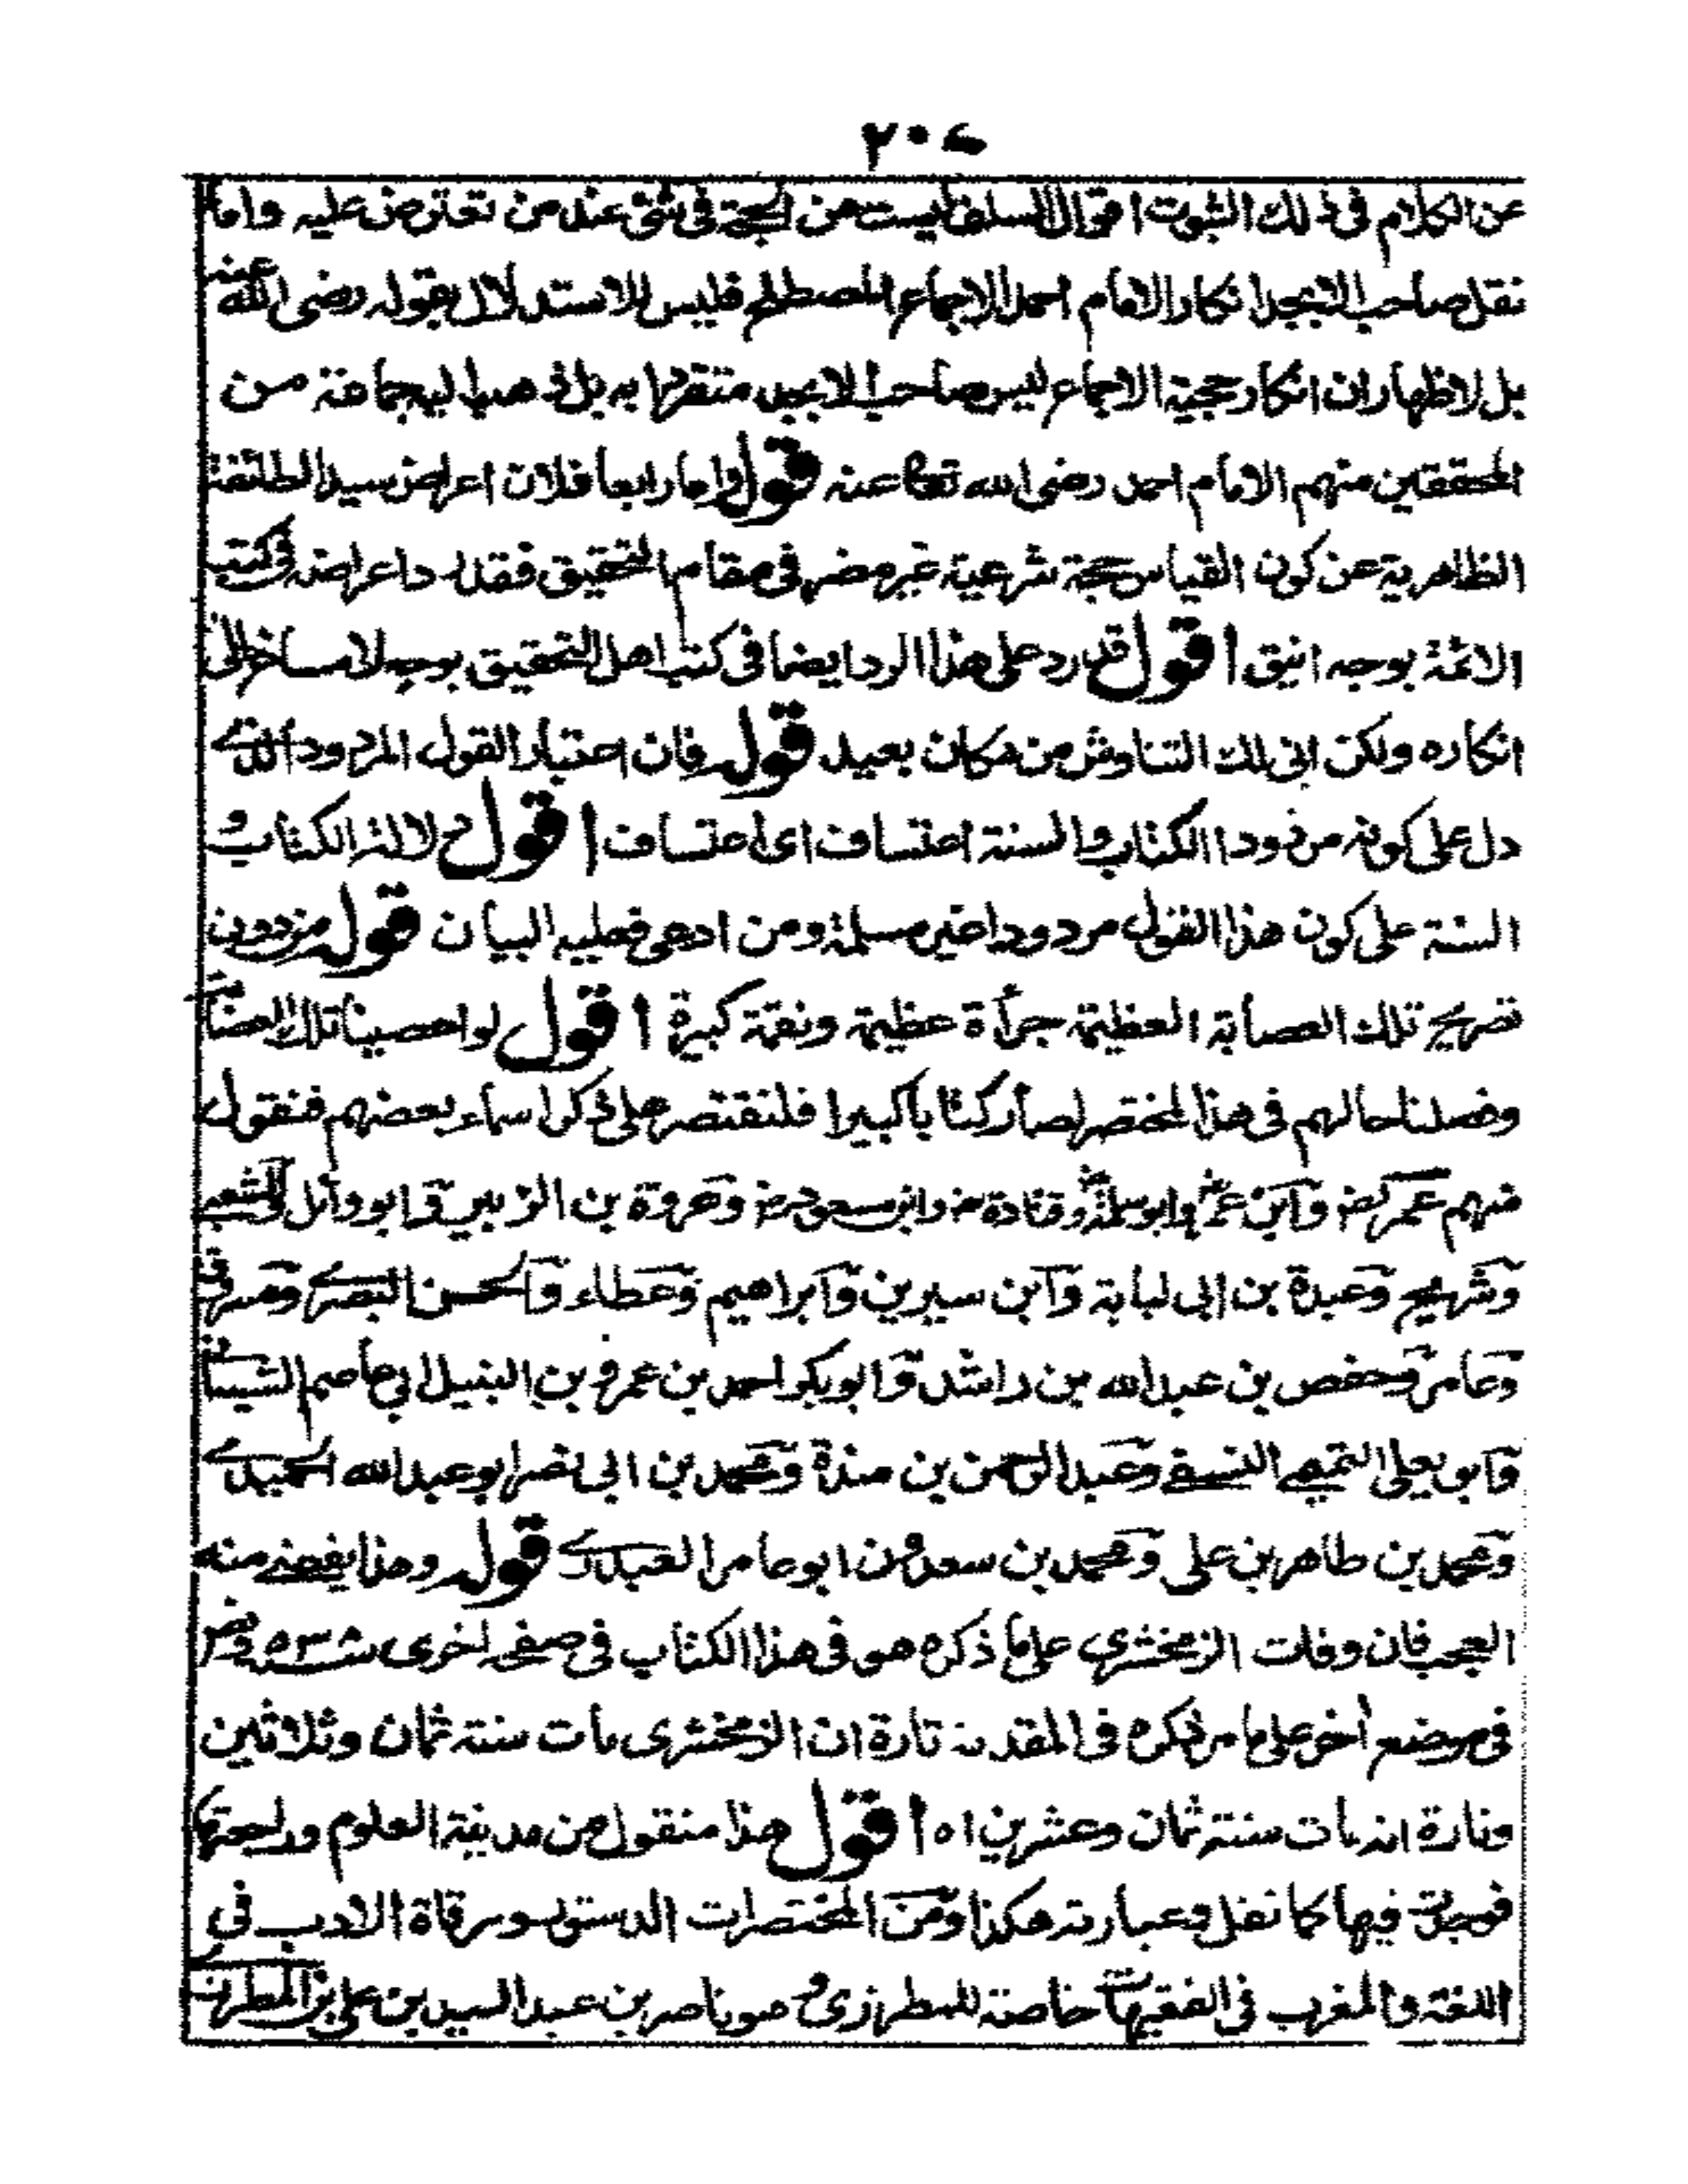 عن الكلام فى ذلك الثبوت اقوال السلف ليست من الحجة فى شئ عند من تعترض عليه واما
نقل صاحب الابجد انكار الامام احمد الاجماع المصطلح فليس للاستدلال بقوله رضى الله عنه
بل لاظهار ان انكار حجية الاجماع ليس صاحب الابجد متفردا به بل ذهب اليه جماعة من
المحققين منهم الامام احمد رضى الله تعالى عنه قوله واما رابعا فلان اعراض سيد الطائفة
الظاهرية عن كون القياس حجة شرعية غير مضر فى مقام التحقيق فقد رد اعراضه فى كتب
الائمة بوجه انيق اقول قد رد على هذا الرد ايضا فى كتب اهل التحقيق بوجه لا مساغ الى
انكاره ولكن انى لك التناوش من مكان بعيد قوله فان اعتبار القول المردود الذے
دل على كونه مردودا الكتاب والسنة اعتساف اى اعتساف اقول دلالة الكتاب و
السنة على كون هذا القول مردودا غير مسلمة ومن ادعى فعليه البيان قوله من دون
تصريح تلك العصابة العظيمة جرأة عظيمة ونقمة كبيرة اقول لو احصينا تلك العصابة
وفصلنا حالهم فى هذا المختصر لصار كتابا كبيرا فلنقتصر على ذكر اسماء بعضهم فنقول
منهم عمر رض وابن عمر رض وابو سلمة رض وقتادة رض وابن مسعود رض وعروة بن الزبير وابو وائل والشعبے
وشريح وعبدة بن ابى لبابة وابن سيرين وابراهيم وعطاء والحسن البصرے ومسروق
وعامر وحفص بن عبد الله بن راشد وابو بكر احمد بن عمرو بن النبيل ابى عاصم الشيبانے
وابو يعلى التميمے النسفے وعبد الرحمن بن مندة ومحمد بن ابى نصر ابو عبد الله الحميدے
ومحمد بن طاهر بن على ومحمد بن سعدون ابو عامر العبدرے قوله وهذا يفضے منه
العجب فان وفات الزمخشرى على ما ذكره هو فى هذا الكتاب فى صفحه اخرى سنه ٥٣ وقد مر
فى موضع اخر على ما مر ذكره فى المقدمة تارة ان الزمخشرى مات سنة ثمان وثلاثين
وتارة انه مات سنة ثمان وعشرين اه اقول هذا منقول من مدينة العلوم وراجعتها
فوجدته فيها كما نقل وعبارته هكذا ومن المختصرات الدستور ومرقاة الادب فى
اللغة والمغرب فى الفقهيات خاصة للمطرزى وهو ناصر بن عبد السيد بن على بن المطرز